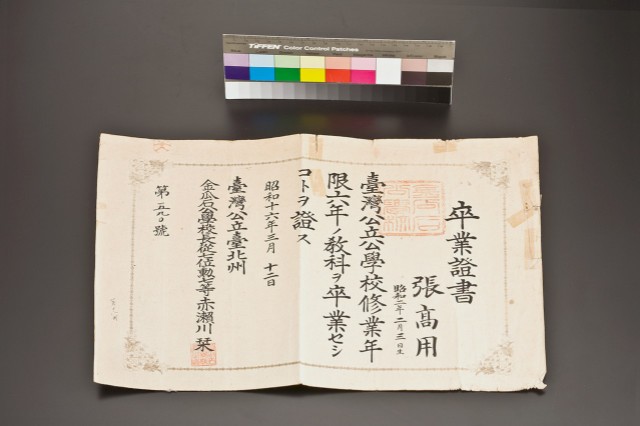 TIFFEN Color Control Patches
卒業證書
張高用
昭和二年二月三日生
臺灣公立公學校修業年
限六年ノ敎科ヲ卒業セシ
コトヲ證ス
昭和十六年三月十二日
臺灣公立臺北州
金瓜石公學校長從七位勳七等赤瀨川 栞
第五九〇號